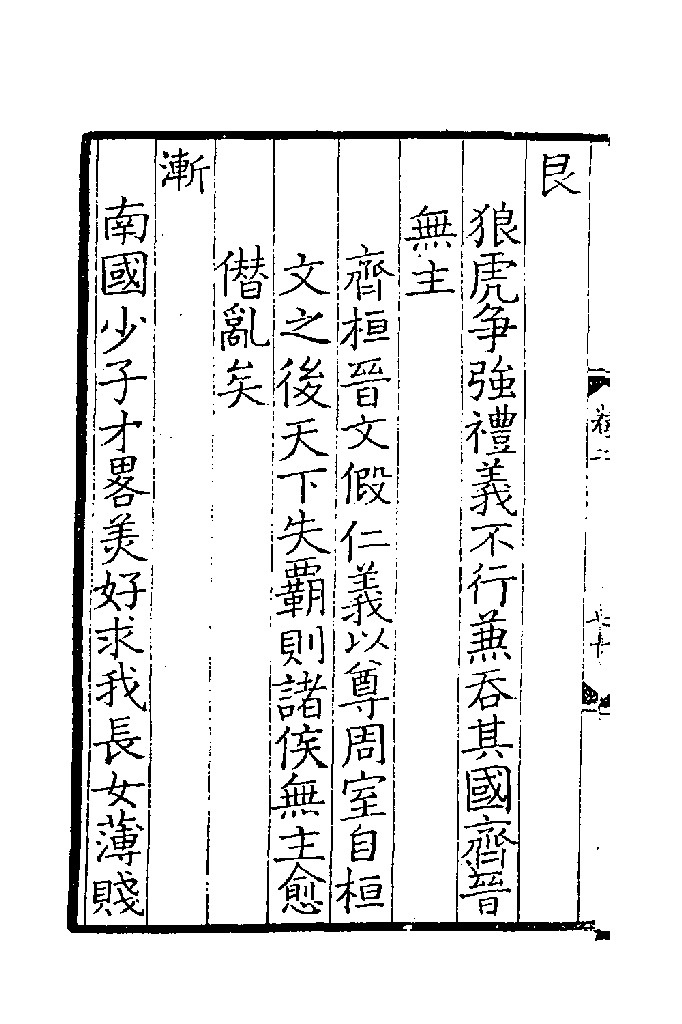 艮
狼虎争強禮義不行兼吞其國齊晉
無主
齊桓晉文假仁義以尊周室自桓
文之後天下失覇則諸侯無主愈
僭亂矣
漸
南國少子才畧美好求我長女薄賤